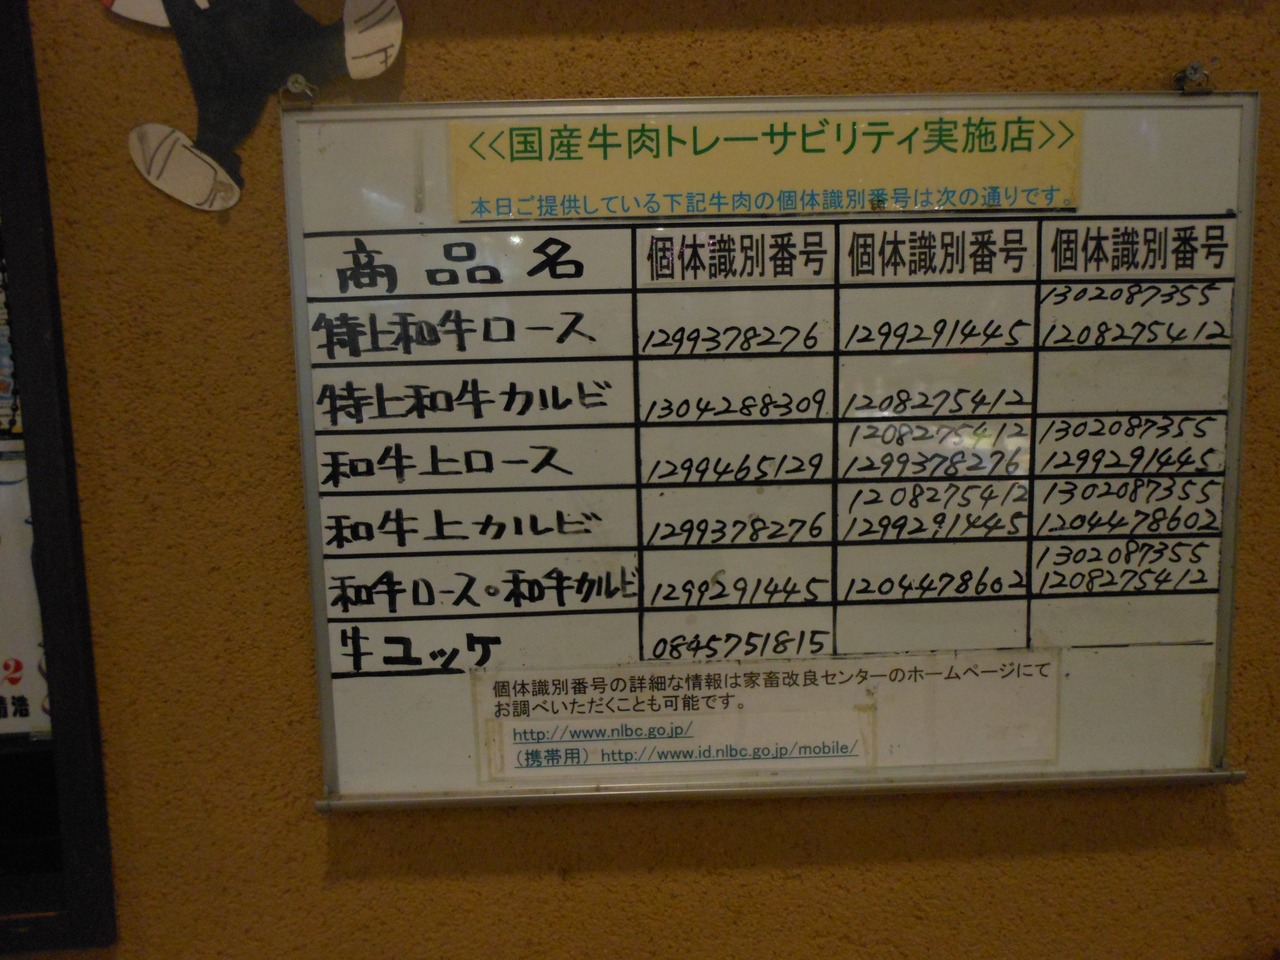 <<国産牛肉トレーサビリティ実施店>>
本日ご提供している下記牛肉の個体識別番号は次の通りです。
商品名 個体識別番号 個体識別番号 個体識別番号
1302087355
特上和牛ロース 1299378276 1299291445 1208275412
特上和牛カルビ 1304288309 1208275412
1208275412 1302087355
和牛上ロース 1299465129 1299378276 1299291445
1208275412 1302087355
和牛上カルビ 1299378276 1299291445 1204478602
1302087355
和牛ロース。和牛カルビ 1299291445 1204478602 1208275412
牛ユッケ 0845751815
個体識別番号の詳細な情報は家畜改良センターのホームページにて
お調べいただくことも可能です。
http://www.nlbc.go.jp/
（携帯用）http://www.id.nlbc.go.jp/mobile/
2